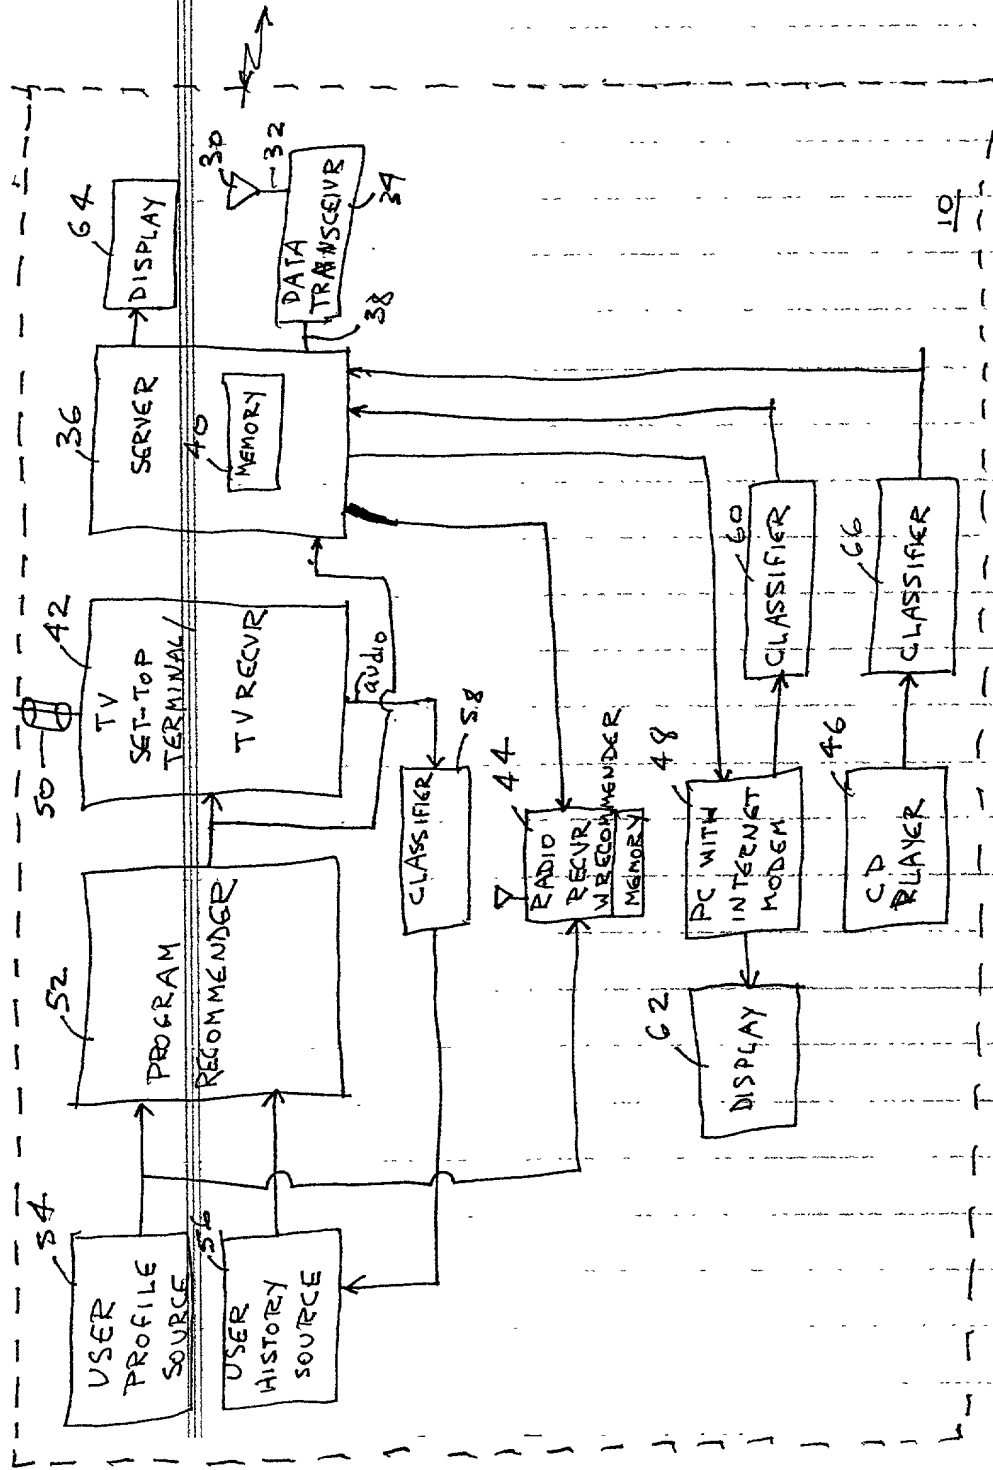 54
USER
PROFILE
SOURCE
56
USER
HISTORY
SOURCE
52
PROGRAM
RECOMMENDER
50
42
TV
SET-TOP
TERMINAL/
TV RECVR
audio
36
SERVER
40
MEMORY
64
DISPLAY
30
32
DATA
TRANSCEIVR
34
38
CLASSIFIER
58
44
RADIO
RECVR
W RECOMMENDER
MEMORY
62
DISPLAY
48
PC WITH
INTERNET
MODEM
60
CLASSIFIER
46
CD
PLAYER
66
CLASSIFIER
10